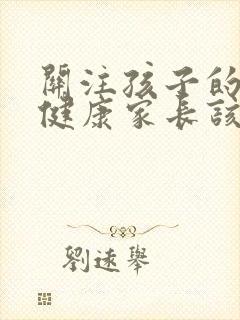 關注孩子的
健康家長該
劉逑舉